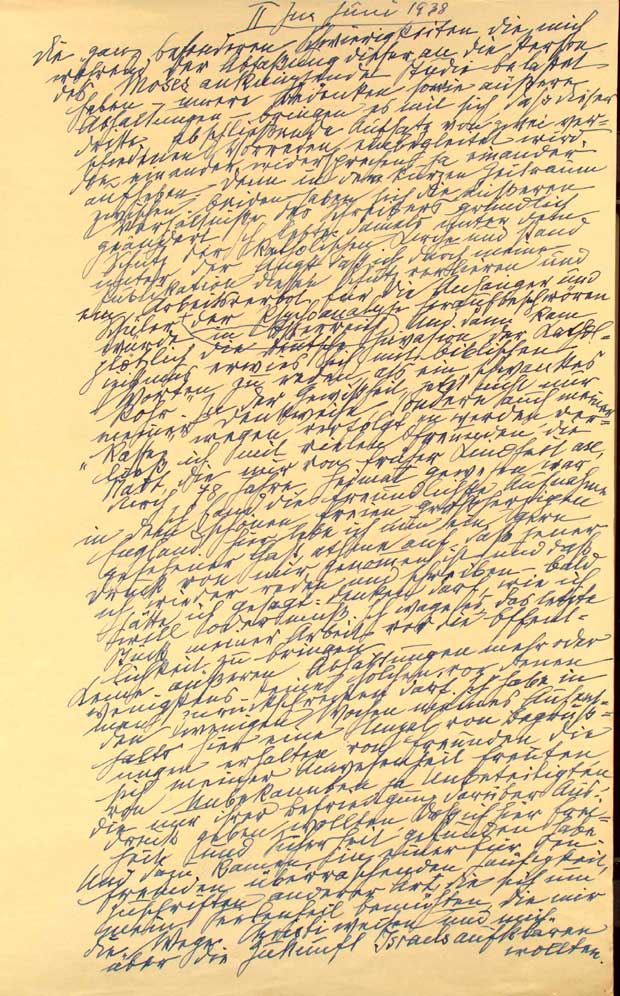 II Im Juni 1938
Die ganz besonderen Schwierigkeiten, die mich
während der Abfassung dieser an die Person
des Moses anknüpfenden Studie belastet
haben – innere Bedenken sowie äussere
Abhaltungen – bringen es mit sich, dass dieser
dritte abschließende Aufsatz von zwei ver-
schiedenen Vorreden eingeleitet wird,
die einander widersprechen, ja einander
aufheben. Denn in dem kurzen Zeitraum
zwischen beiden haben sich die äusseren
Verhältnisse des Schreibers gründlich
geändert. Ich lebte damals unter dem
Schutz der katholischen Kirche und stand
unter der Angst, dass ich durch meine
Publikation diesen Schutz verlieren und
ein Arbeitsverbot für die Anhänger und
Schüler der Psychoanalyse heraufbeschwören
würde in Österreich. Und dann kam
plötzlich die deutsche Invasion; der Kathol-
izismus erwies sich, mit biblischen
Worten zu reden, als ein schwankes
Rohr. In der Gewißheit, jetzt nicht nur
meiner Denkweise sondern auch meiner
„Rasse“ wegen verfolgt zu werden ver-
ließ ich mit vielen Freunden die
Stadt, die mir von früher Kindheit an,
durch 78 Jahre, Heimat gewesen war.
Ich fand die freundlichste Aufnahme
in dem schönen, freien großherzigen
England. Hier lebe ich nun, ein gern
gesehener Gast, atme auf, daß jener
Druck von mir genommen ist und daß
ich wieder reden und schreiben – bald
hätte ich gesagt: denken darf, wie ich
will oder muß. Ich wage es, das letzte
Stück meiner Arbeit vor die Öffent-
lichkeit zu bringen.
Keine äusseren Abhaltungen mehr oder
wenigstens keine solchen, vor denen
man zurückschrecken darf. Ich habe in
den wenigen Wochen meines Aufent-
halts hier eine Unzahl von Begrüß-
ungen erhalten von Freunden, die
sich meiner Anwesenheit freuten,
von Unbekannten, ja Unbeteiligten,
die nur ihrer Befriedigung darüber Aus-
druck geben wollten, dass ich hier Frei-
heit und Sicherheit gefunden habe.
Und dazu kamen, in einer für den
Fremden überraschenden Häufigkeit,
Zuschriften anderer Art, die sich um
mein Seelenheil bemühten, die mir
die Wege Christi weisen und mich
über die Zukunft Israels aufklären
wollten.